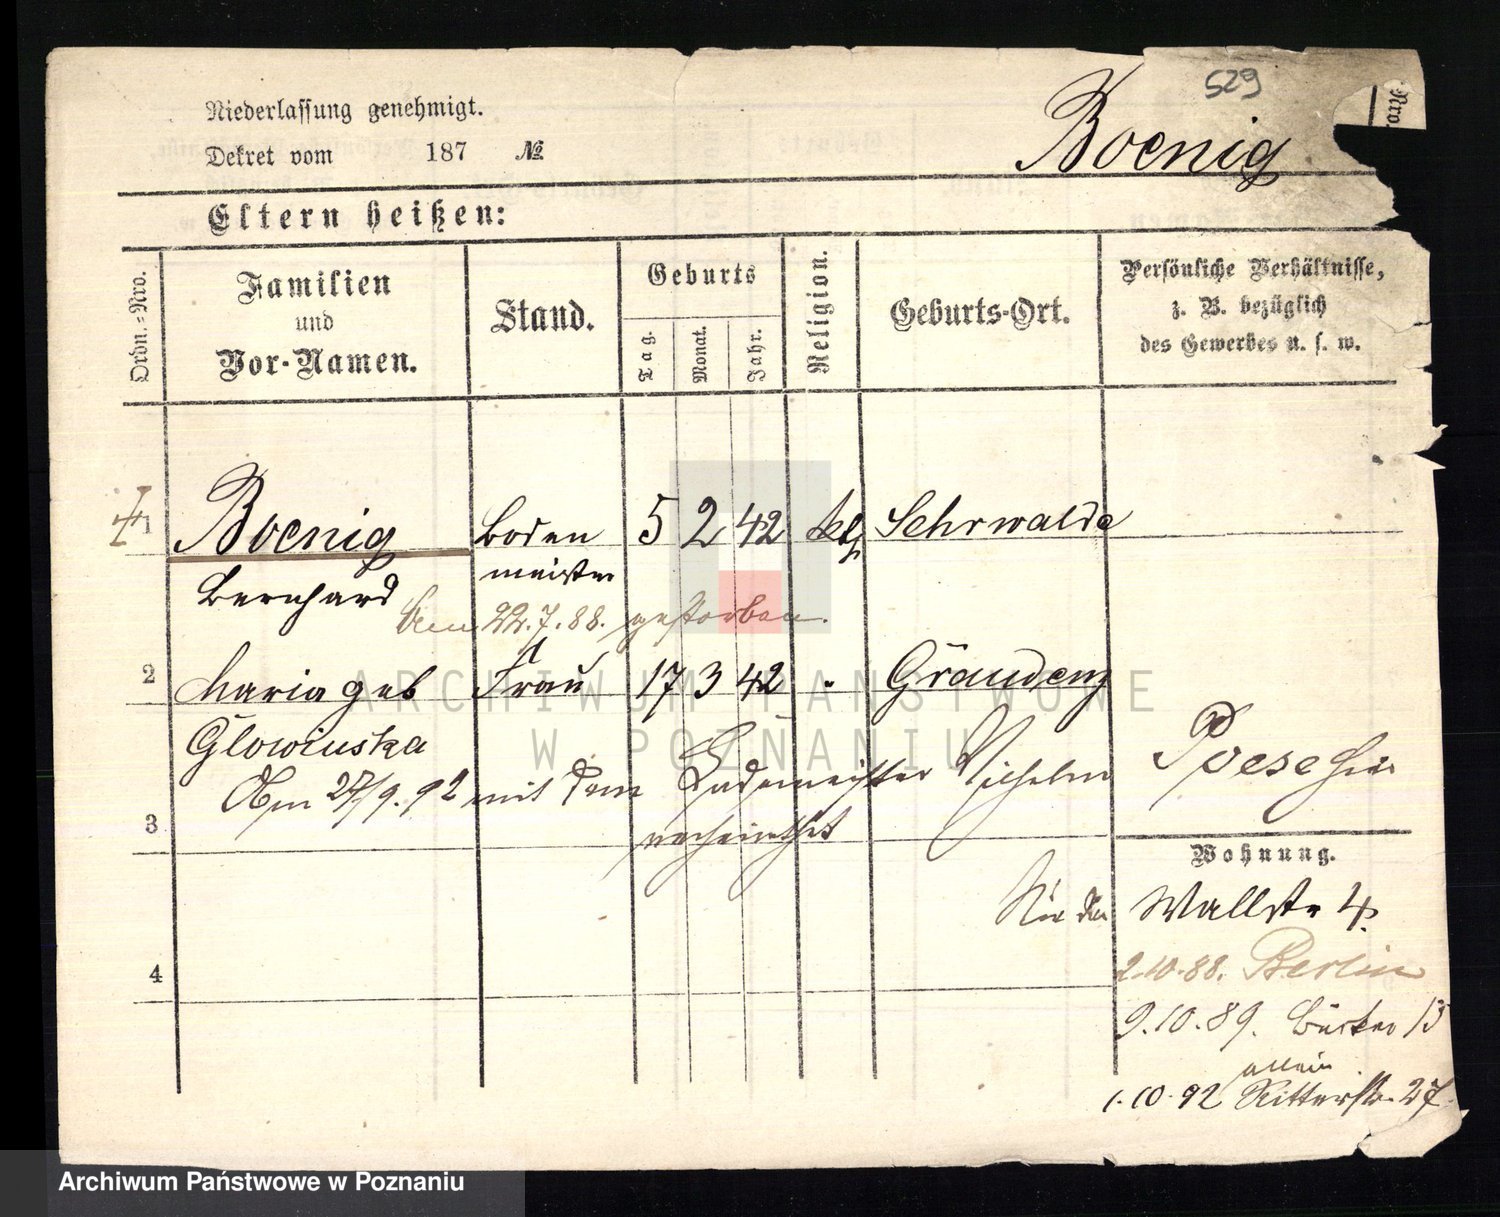 529
Nro.
Niederlassung genehmigt.
Dekret vom 187 №
Boenig
Eltern heißen:
Ordn.=Nro.
Familien
und
Vor-Namen.
Stand.
Geburts
Tag.
Monat.
Jahr.
Religion.
Geburts-Ort.
Persönliche Verhältnisse,
z. B. bezüglich
des Gewerbes u. s. w.
1 Boenig Boden 5 2 42 Sehrwalde
meister
Bernhard
22.7.88. gestorben.
2 Maria geb Frau 17 3 42 Graudenz
Glowinska
Am 27/9.92 mit dem Lademeister Wilhelm Poese hier
3 verheirathet
Wohnung.
Wallstr 4.
4 2.10.88. Berlin
9.10.89.
allein
1.10.92 Ritterstr. 27
ARCHIWUM PAŃSTWOWE
W POZNANIU
Archiwum Państwowe w Poznaniu